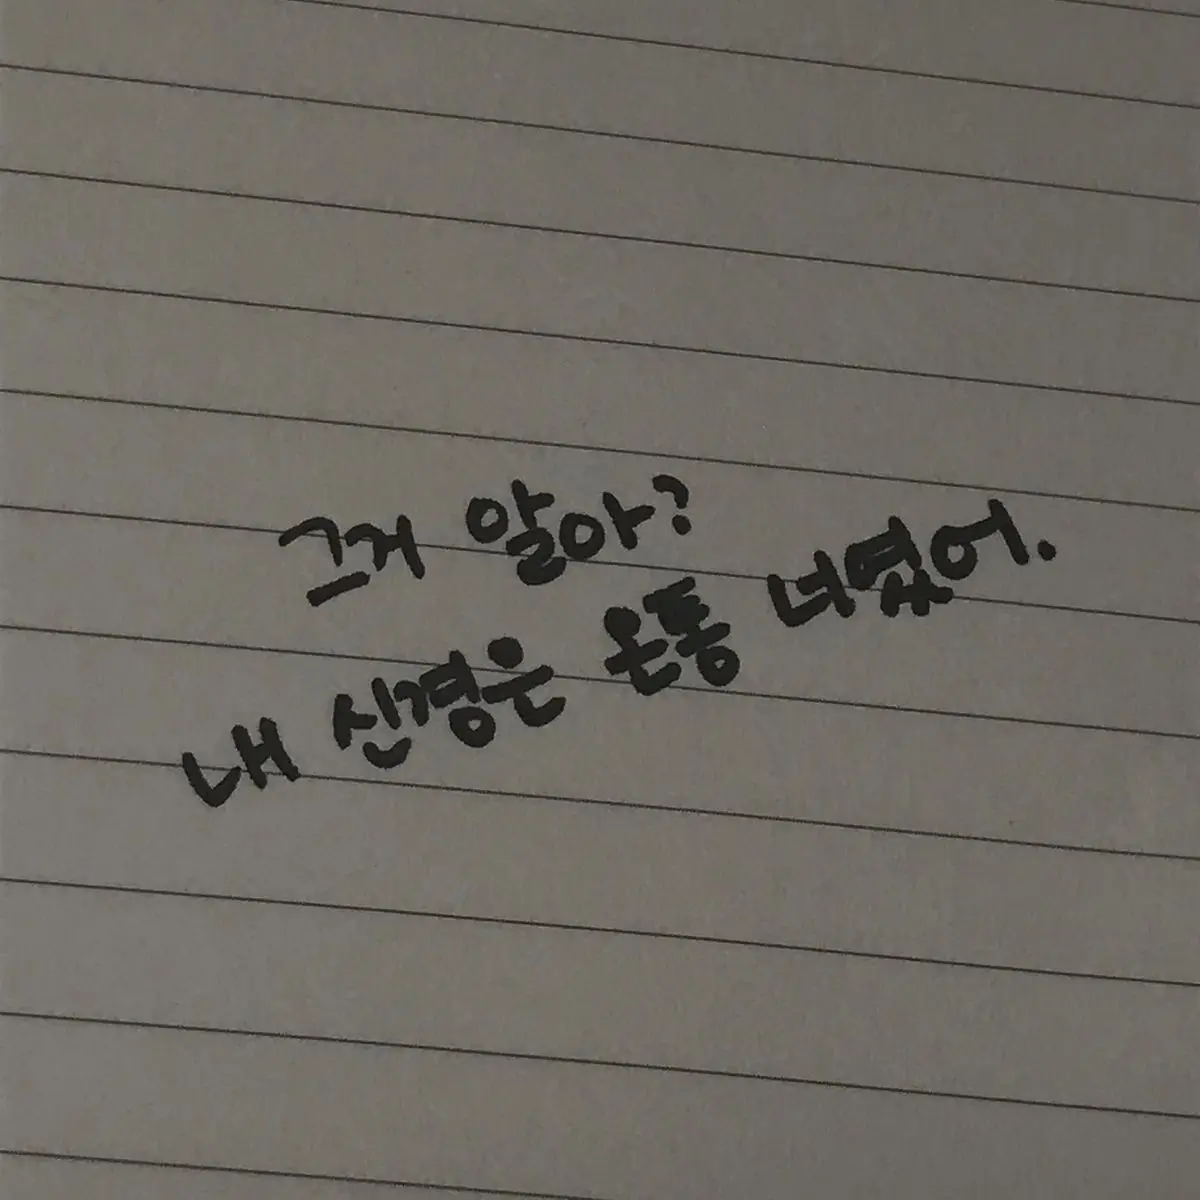 그거 알아?
내 신경은 온통 너였어.